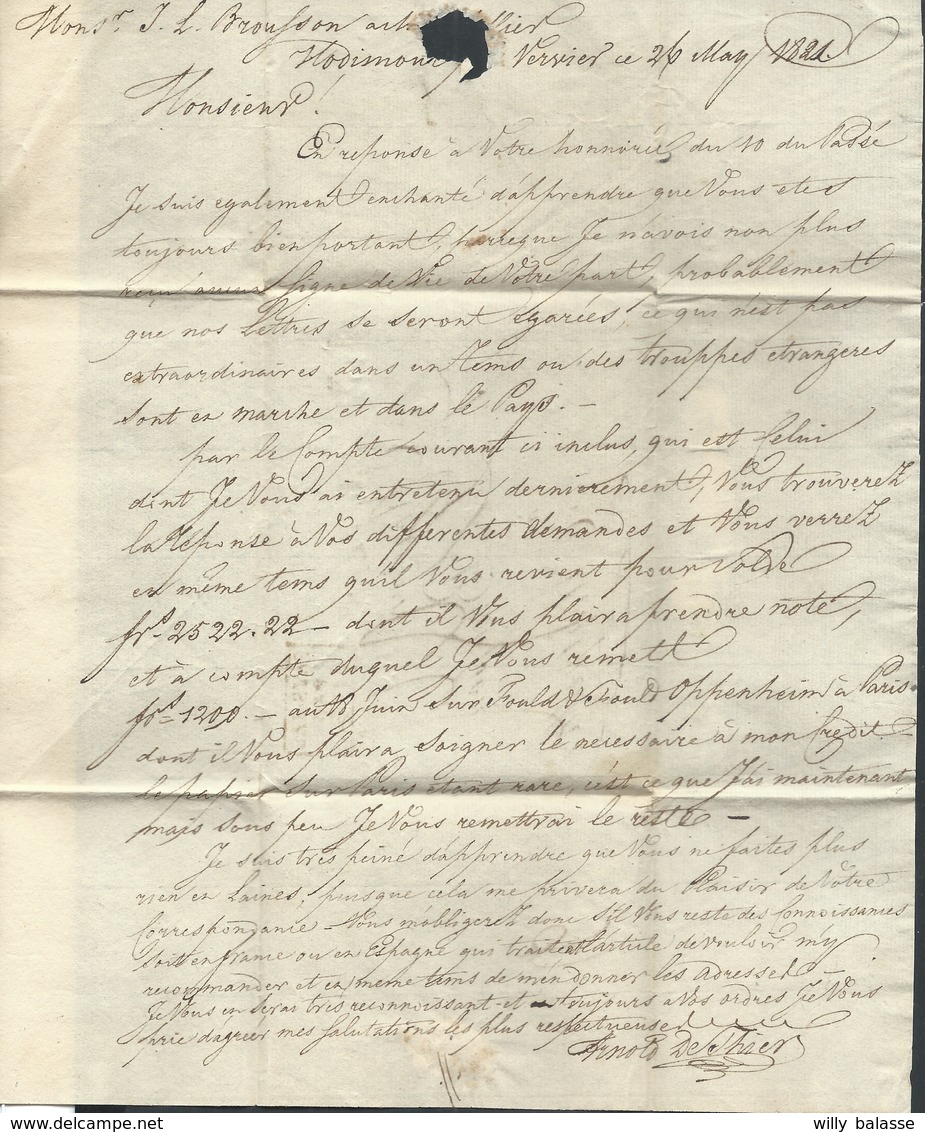 Monsr. J. L. Brousson à
Hodimont Vervier ce 26 May 1821.
Monsieur!
En reponse à Votre honnorée du 10 du Passé
Je suis egalement enchanté d'apprendre que Vous etes
toujours bien portant, parceque Je n'avois non plus
reçu aucun signe de Vie de Votre part, probablement
que nos Lettres se seront egarées, ce qui n'est pas
extraordinaires dans un Tems ou des trouppes etrangeres
sont en marche et dans le Pays. —
par le Compte courant ci inclus, qui est Celui
dont Je Vous ai entretenu dernierement, Vous trouverez
la reponse à Vos differentes demandes et Vous verrez
en même tems qu'il Vous revient pour Solde
frs. 2522.22 — dont il Vous plaira prendre note,
et à compte duquel Je Vous remets
frs. 1200. — au 18 Juin sur Fould & Fould Oppenheim à Paris.
dont il Vous plaira soigner le necessaire à mon Credit —
le papier sur Paris etant rare, c'est ce que J'ai maintenant
mais sous peu Je Vous remettrai le reste —
Je suis très peiné d'apprendre que Vous ne faites plus
rien en Laines, puisque cela me privera du Plaisir de Vôtre
Correspondance — Vous m'obligerez donc s'il Vous reste des Connoissances
soit en france ou en Espagne qui traitent l'article de vouloir m'y
recommander et en même tems de m'en donner les adresses —
Je Vous en serai très reconnoissant et toujours à Vos ordres Je Vous
prie d'agréer mes Salutations les plus respectueuses
Arnold DeThier
willy balasse